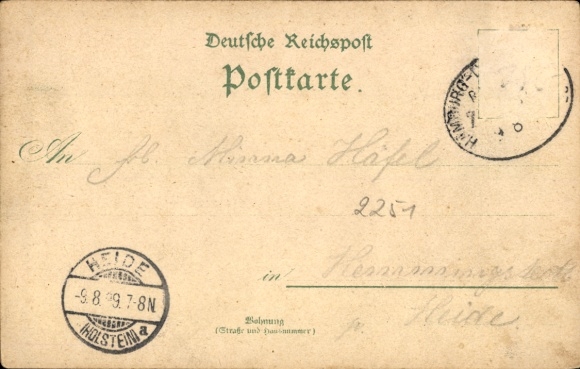 Deutsche Reichspost
Postkarte.
HAMBURG-
An Frl. Minna Häfel
2251
in Hemmingstedt
b. Heide.
Wohnung
(Straße und Hausnummer)
HEIDE
-9.8.99.7-8N.
(HOLSTEIN) a